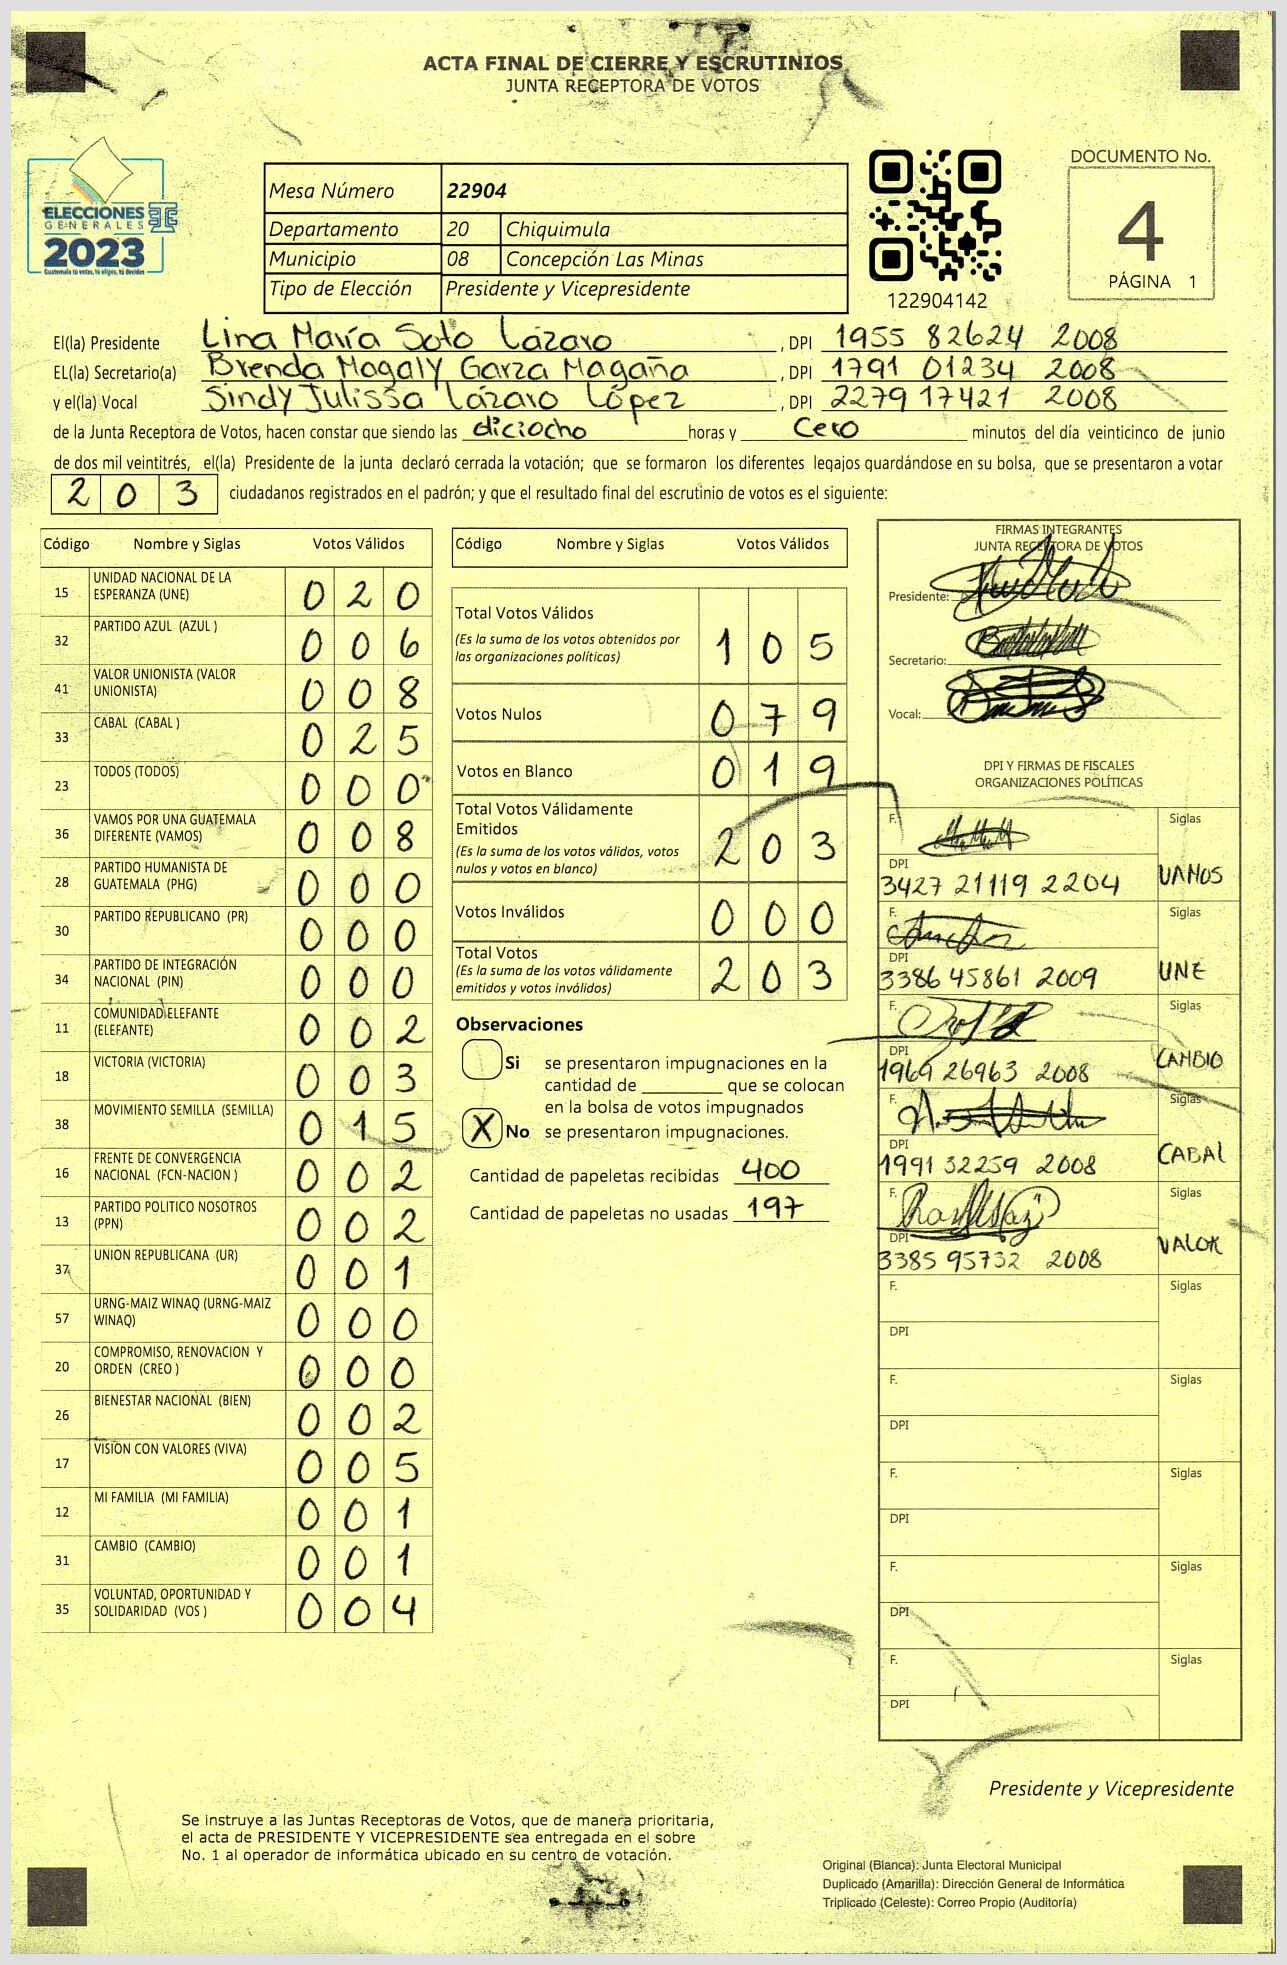 ACTA FINAL DE CIERRE Y ESCRUTINIOS
JUNTA RECEPTORA DE VOTOS
ELECCIONES
GENERALES
2023
Guatemala tú votas, tú eliges, tú decides
Mesa Número 22904
Departamento 20 Chiquimula
Municipio 08 Concepción Las Minas
Tipo de Elección Presidente y Vicepresidente
122904142
DOCUMENTO No.
4
PÁGINA 1
El(la) Presidente Lina María Soto Lázaro , DPI 1955 82624 2008
EL(la) Secretario(a) Brenda Magaly Garza Magaña , DPI 1791 01234 2008
y el(la) Vocal Sindy Julissa Lázaro López , DPI 2279 17421 2008
de la Junta Receptora de Votos, hacen constar que siendo las diciocho horas y Cero minutos del día veinticinco de junio
de dos mil veintitrés, el(la) Presidente de la junta declaró cerrada la votación; que se formaron los diferentes legajos guardándose en su bolsa, que se presentaron a votar
203 ciudadanos registrados en el padrón; y que el resultado final del escrutinio de votos es el siguiente:
Código Nombre y Siglas Votos Válidos
15 UNIDAD NACIONAL DE LA ESPERANZA (UNE) 020
32 PARTIDO AZUL (AZUL ) 006
41 VALOR UNIONISTA (VALOR UNIONISTA) 008
33 CABAL (CABAL ) 025
23 TODOS (TODOS) 000
36 VAMOS POR UNA GUATEMALA DIFERENTE (VAMOS) 008
28 PARTIDO HUMANISTA DE GUATEMALA (PHG) 000
30 PARTIDO REPUBLICANO (PR) 000
34 PARTIDO DE INTEGRACIÓN NACIONAL (PIN) 000
11 COMUNIDAD ELEFANTE (ELEFANTE) 002
18 VICTORIA (VICTORIA) 003
38 MOVIMIENTO SEMILLA (SEMILLA) 015
16 FRENTE DE CONVERGENCIA NACIONAL (FCN-NACION ) 002
13 PARTIDO POLITICO NOSOTROS (PPN) 002
37 UNION REPUBLICANA (UR) 001
57 URNG-MAIZ WINAQ (URNG-MAIZ WINAQ) 000
20 COMPROMISO, RENOVACION Y ORDEN (CREO ) 000
26 BIENESTAR NACIONAL (BIEN) 002
17 VISION CON VALORES (VIVA) 005
12 MI FAMILIA (MI FAMILIA) 001
31 CAMBIO (CAMBIO) 001
35 VOLUNTAD, OPORTUNIDAD Y SOLIDARIDAD (VOS ) 004
Código Nombre y Siglas Votos Válidos
Total Votos Válidos
(Es la suma de los votos obtenidos por las organizaciones políticas) 105
Votos Nulos 079
Votos en Blanco 019
Total Votos Válidamente Emitidos
(Es la suma de los votos válidos, votos nulos y votos en blanco) 203
Votos Inválidos 000
Total Votos
(Es la suma de los votos válidamente emitidos y votos inválidos) 203
Observaciones
Si se presentaron impugnaciones en la
cantidad de ________ que se colocan
en la bolsa de votos impugnados
X No se presentaron impugnaciones.
Cantidad de papeletas recibidas 400
Cantidad de papeletas no usadas 197
FIRMAS INTEGRANTES
JUNTA RECEPTORA DE VOTOS
Presidente:
Secretario:
Vocal:
DPI Y FIRMAS DE FISCALES
ORGANIZACIONES POLÍTICAS
F. Siglas
DPI
3427 21119 2204 VAMOS
F. Siglas
DPI
3386 45861 2009 UNE
F. Siglas
DPI
1969 26963 2008 CAMBIO
F. Siglas
DPI
1991 32259 2008 CABAL
F. Siglas
DPI
3385 95732 2008 VALOR
F. Siglas
DPI
F. Siglas
DPI
F. Siglas
DPI
F. Siglas
DPI
F. Siglas
DPI
Presidente y Vicepresidente
Se instruye a las Juntas Receptoras de Votos, que de manera prioritaria,
el acta de PRESIDENTE Y VICEPRESIDENTE sea entregada en el sobre
No. 1 al operador de informática ubicado en su centro de votación.
Original (Blanca): Junta Electoral Municipal
Duplicado (Amarilla): Dirección General de Informática
Triplicado (Celeste): Correo Propio (Auditoría)